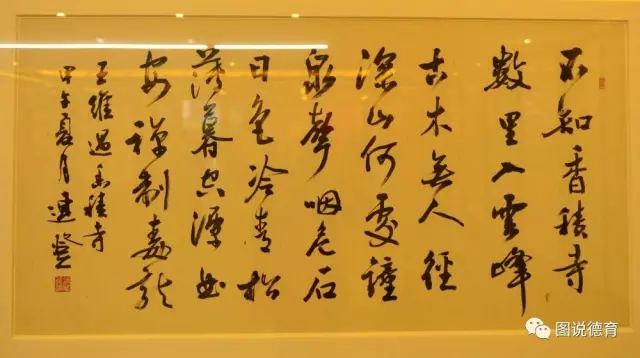 不知香積寺
數里入雲峰
古木無人徑
深山何處鐘
泉聲咽危石
日色冷青松
薄暮空潭曲
安禪制毒龍
王維過香積寺
甲午夏月連登
图说德育